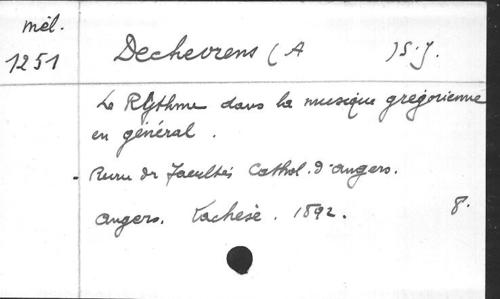 mél.
1251
Dechevrens (A )S.J.
Le Rythme dans la musique grégorienne
en général.
- Revue des Facultés Cathol. d'Angers.
Angers. Lachèse. 1892. 8.